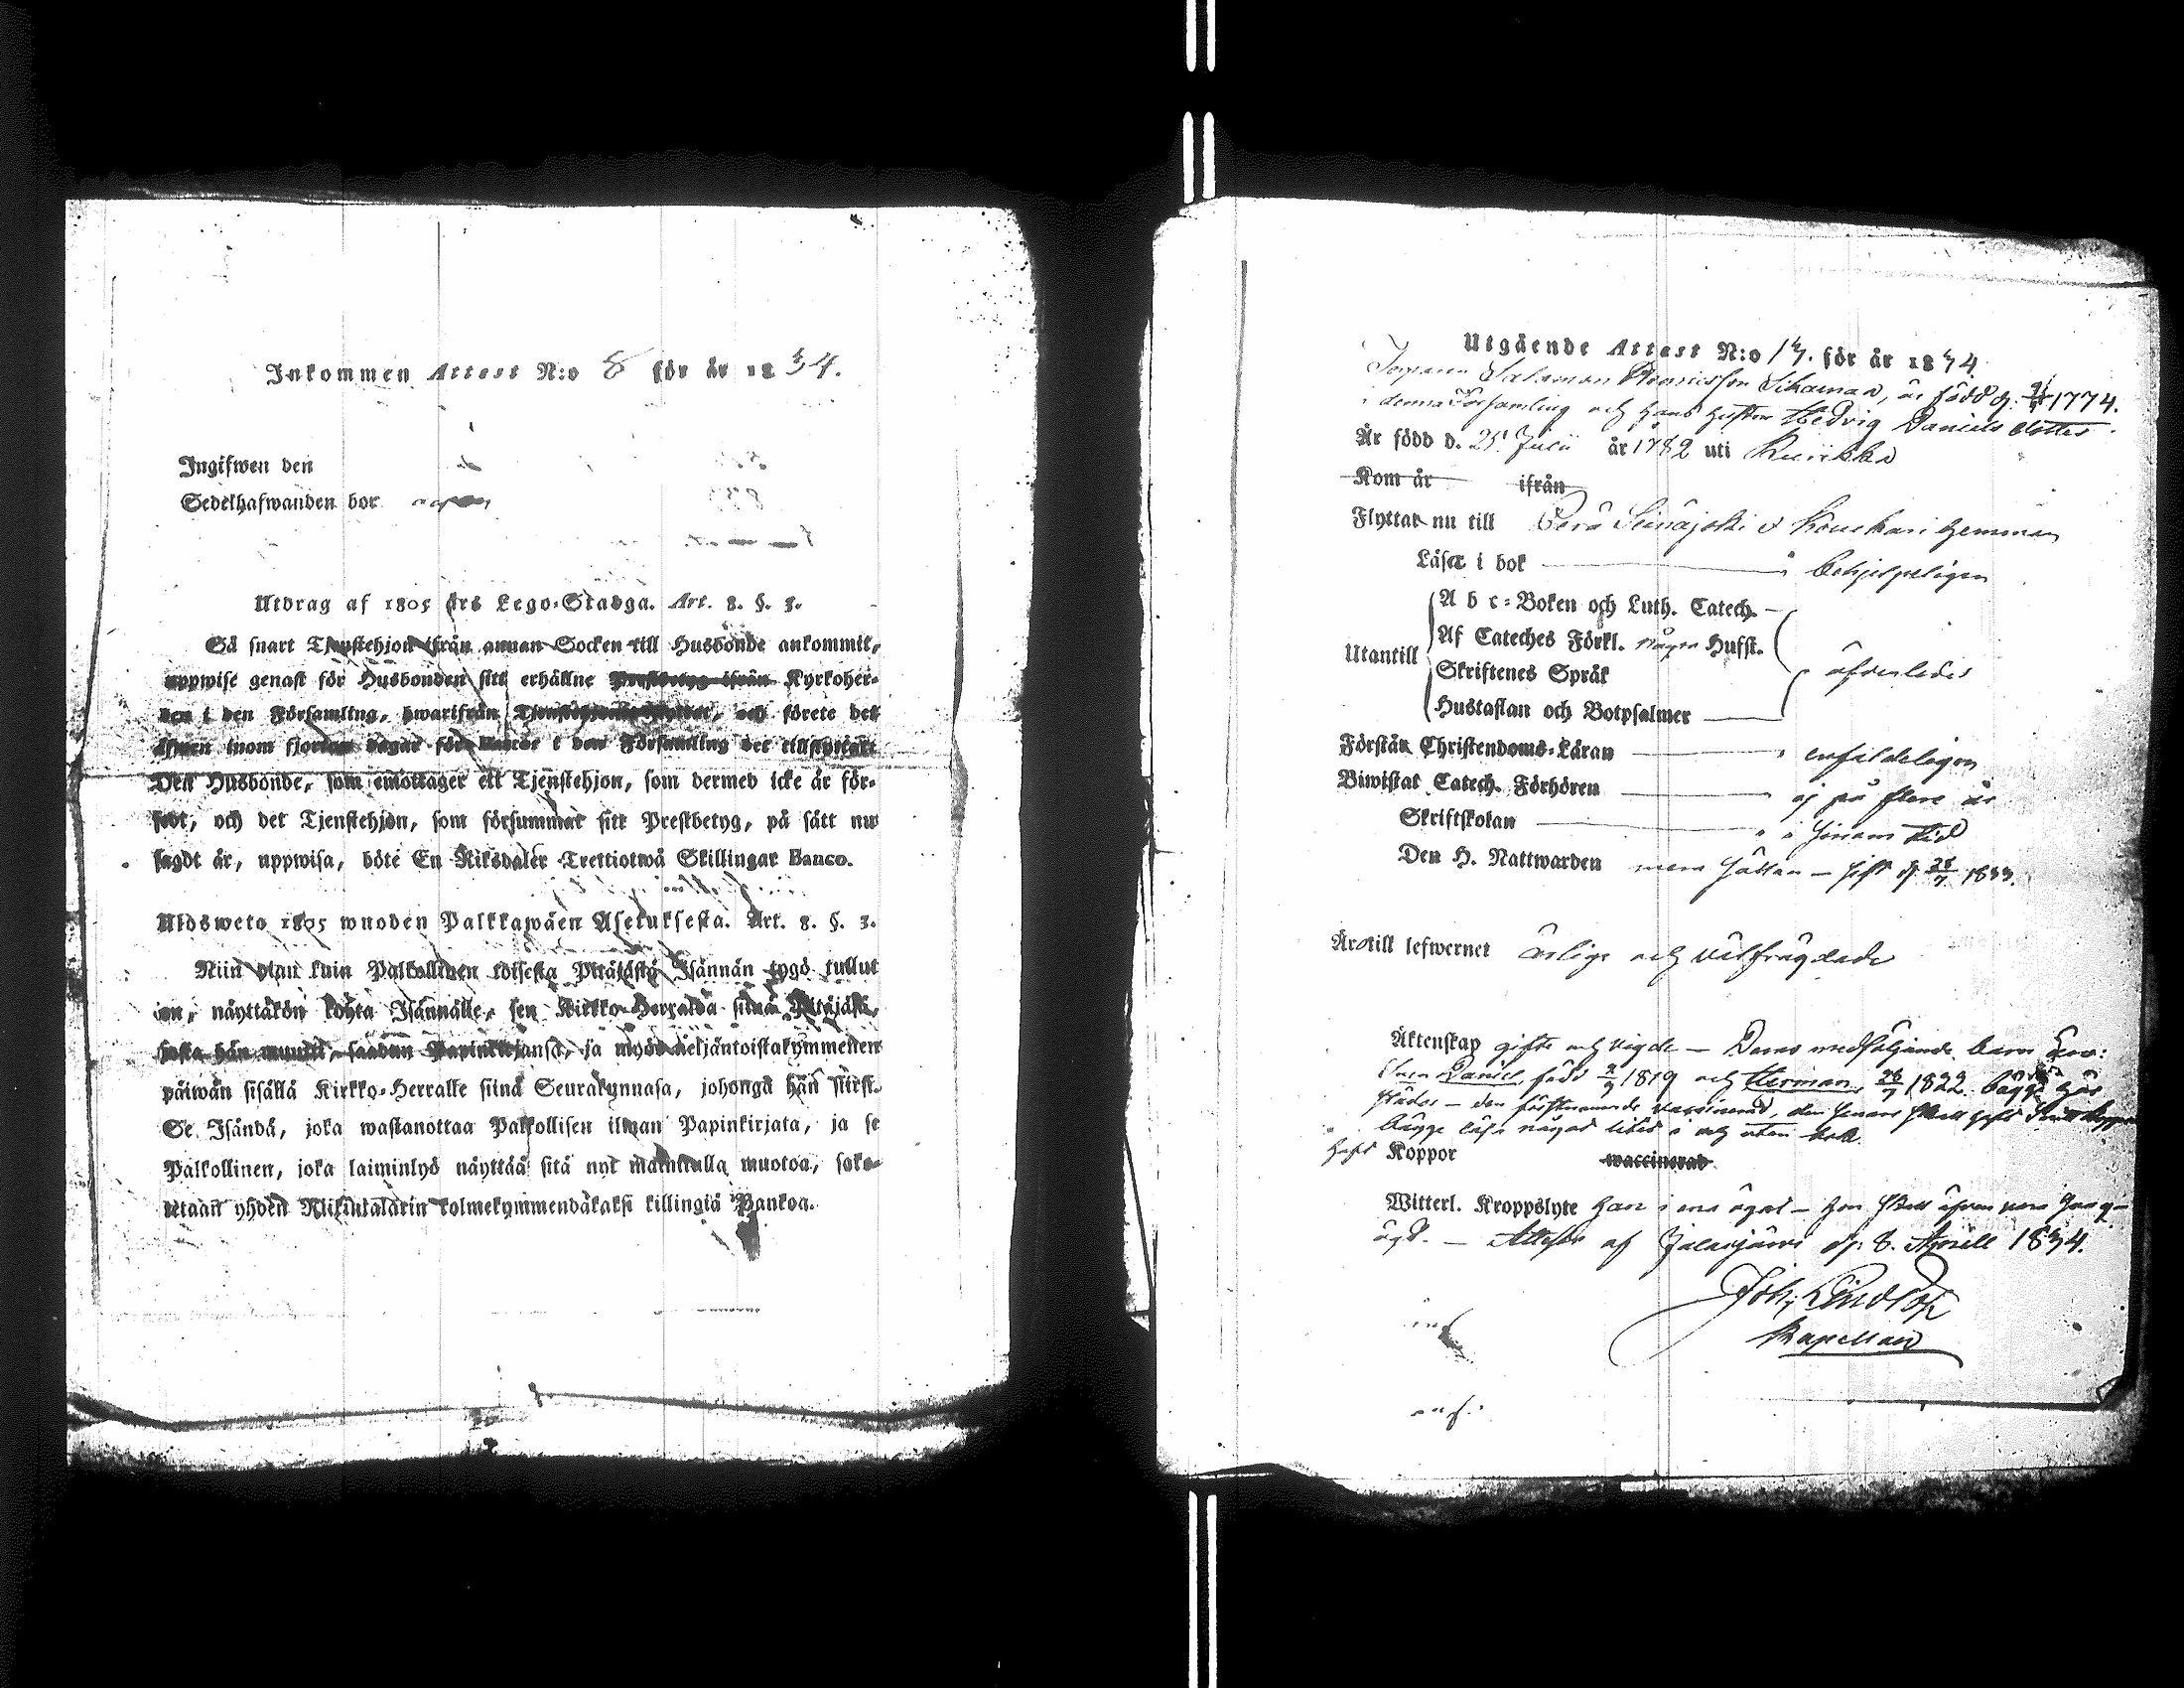 Inkommen Attest N:o 8 för år 1834.
Ingifwen den
Sedelhafwanden bor
Utdrag af 1805 års Lego-Stadga. Art. 8. §. 3.
Så snart Tjenstehjon ifrån annan Socken till Husbonde ankommit,
uppwise genast för Husbonden sitt erhållne Prestbetyg ifrån Kyrkoher-
den i den Församling, hwarifrån och förete det
äfwen inom fjorton dagar för i den Församling det
Den Husbonde, som emottager ett Tjenstehjon, som dermed icke är för-
sedt, och det Tjenstehjon, som försummar sitt Prestbetyg, på sätt nu
sagdt är, uppwisa, böte En Riksdaler Trettiotwå Skillingar Banco.
Uldsweto 1805 wuoden Palkkawäen Asetuksesta. Art. 8. §. 3.
Niin pian kuin Palkollinen toisesta Pitäjästä Isännän tygö tullut
on, näyttäkön kohta Isännälle, sen Kirkko-Herralda siinä Pitäjäsä,
josta hän muutti, saadun Papinkirjansa, ja myös neljäntoistakymmenen
päiwän sisällä Kirkko-Herralle siinä Seurakunnasa, johonga hän siirsi.
Se Isändä, joka wastanottaa Palkollisen ilman Papinkirjata, ja se
Palkollinen, joka laiminlyö näyttää sitä nyt mainitulla muotoa, sako-
tetaan yhden Riikintalarin kolmekymmendäkaksi killingiä Bankoa.
Utgående Attest N:o 13. för år 1834
Salomon Sihaman, är född d. 1774.
i denna Församling och hans hustru Hedvig Daniels dotter
År född d. 25 Julii år 1782 uti Kuirikka
Kom år ifrån
Flyttar nu till Perä Seinäjoki o Kouhari hemman
Läser i bok behjelpeligen
A b c-Boken och Luth. Catech.
Af Cateches Förkl. några Hufst.
Utantill
Skriftenes Språk äfvenledes
Hustaflan och Botpsalmer
Förstår Christendoms-Läran enfaldeligen
Biwistat Catech. Förhören ej på flere år
Skriftskolan i sinom tid
Den H. Nattwarden mera sällan — sist d. 28/7 1833.
Äro till lefwernet ärlige och välfrägdade
Äktenskap gifte och vigde — Deras medföljande barn
Daniel född 2/9 1819 och Herman 28/7 1822 bägge här
födde — den förstnämnde vaccinerad, den senare skall haft
bägge läsa något litet i och utan bok.
haft Koppor waccinerad
Witterl. Kroppslyte han i ena ögat — hon skall äfven vara
ögd. — Attest. af Jalasjärvi d. 8. Aprill 1834.
Joh. Lindlöf
Kapellan